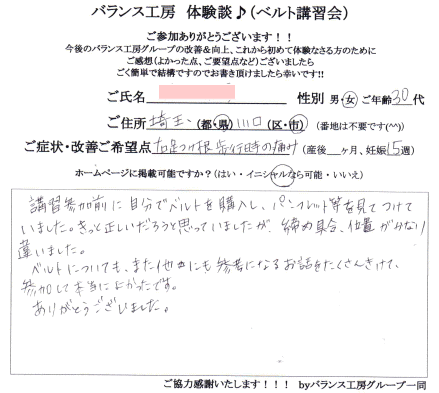 バランス工房 体験談♪(ベルト講習会)
ご参加ありがとうございます！！
今後のバランス工房グループの改善＆向上、これから初めて体験なさる方のために
ご感想(よかった点、ご要望点など)ございましたら
ごく簡単で結構ですのでお書き頂けましたら幸いです!!
ご氏名 性別 男・女 ご年齢30代
ご住所 埼玉 (都・県) 川口 (区・市) (番地は不要です(^^))
ご症状・改善ご希望点 右足つけ根 歩行時の痛み (産後 ヶ月、妊娠15週)
ホームページに掲載可能ですか? (はい・イニシャルなら可能・いいえ)
講習参加前に自分でベルトを購入し、パンフレット等を見てつけて
いました。きっと正しいだろうと思っていましたが、締め具合、位置がかなり
違いました。
ベルトについても、また他にも参考になるお話をたくさんきけて、
参加して本当によかったです。
ありがとうございました。
ご協力感謝いたします！！！ byバランス工房グループ一同